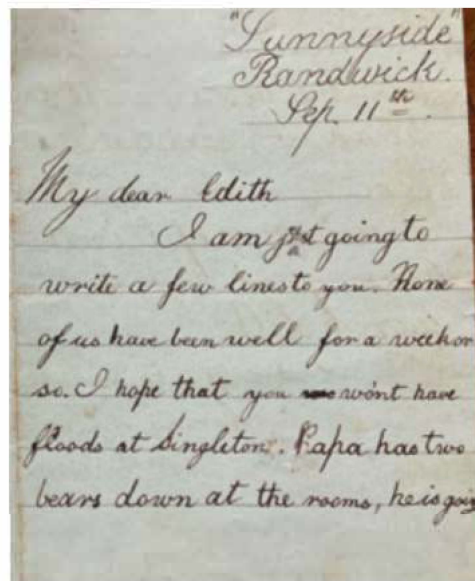 "Sunnyside"
Randwick.
Sep. 11th.
My dear Edith
I am just going to
write a few lines to you. None
of us have been well for a week or
so. I hope that you won't have
floods at Singleton. Papa has two
bears down at the rooms, he is going